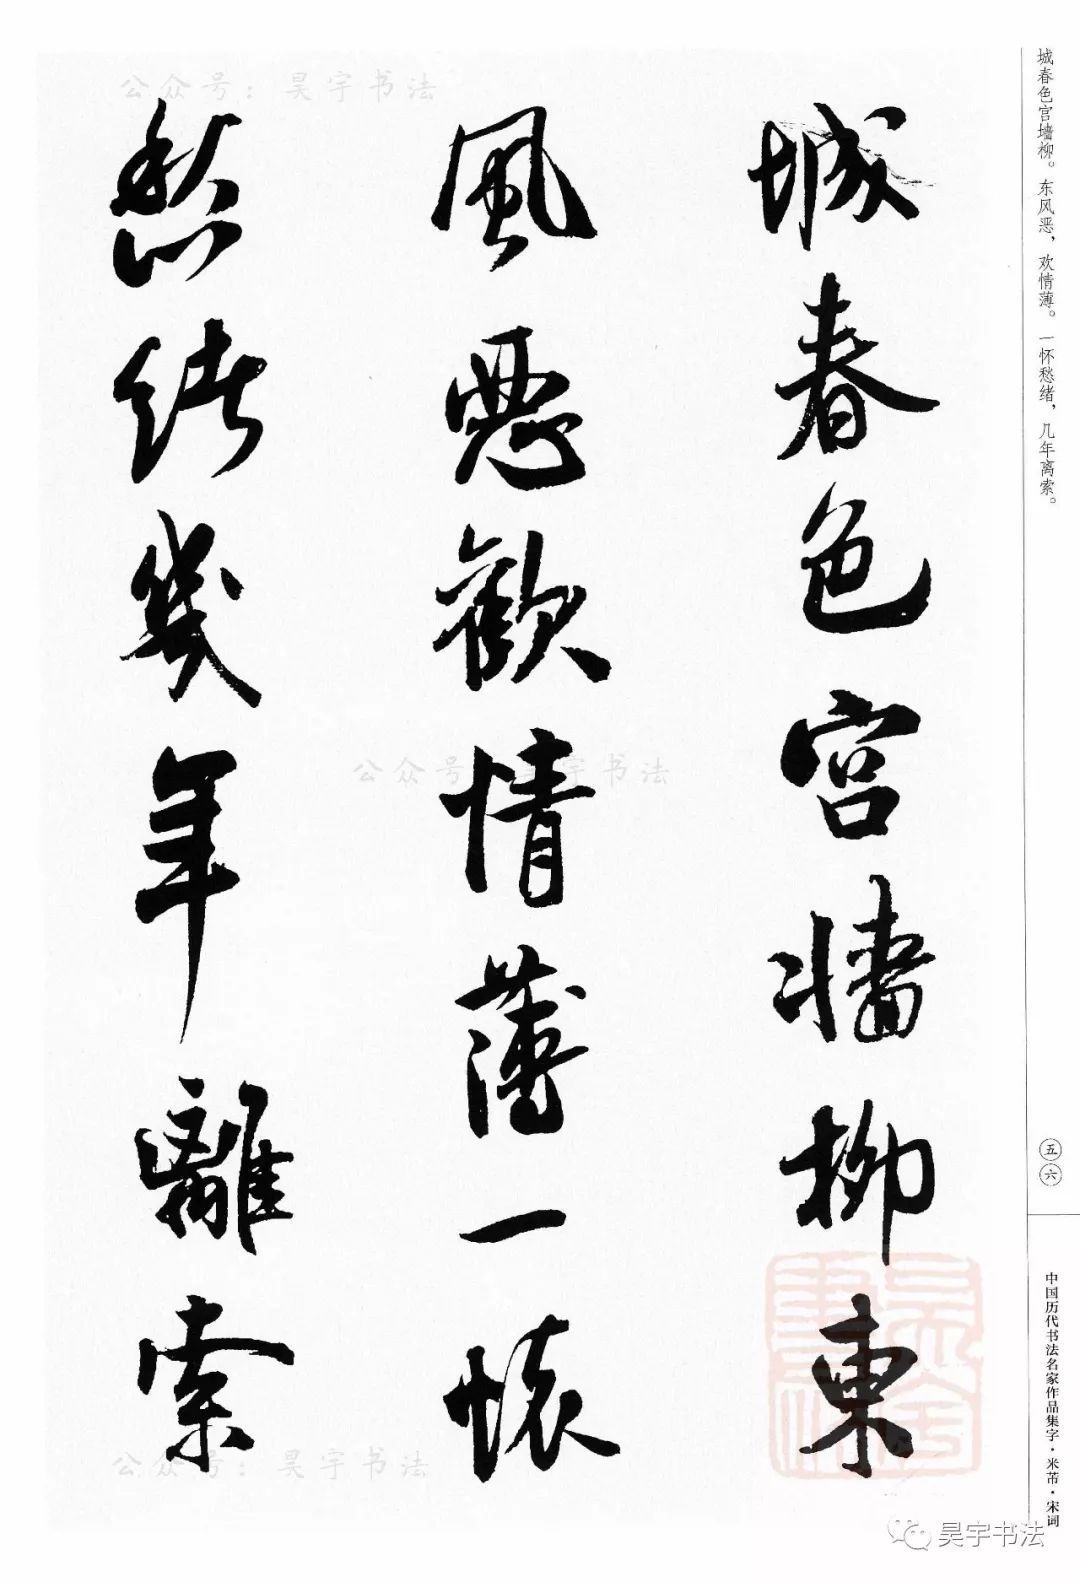 城春色宫墙柳。东风恶，欢情薄。一怀愁绪，几年离索。
城春色宫牆柳東
風惡歡情薄一懷
愁緒幾年離索
五六
中国历代书法名家作品集字·米芾·宋词
公众号：昊宇书法
公众号：昊宇书法
公众号：昊宇书法
昊宇书法